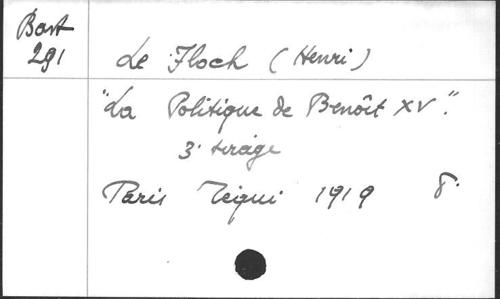 Bart
291
Le Floch (Henri)
"La Politique de Benôit XV".
3e tirage
Paris Tequi 1919 8°